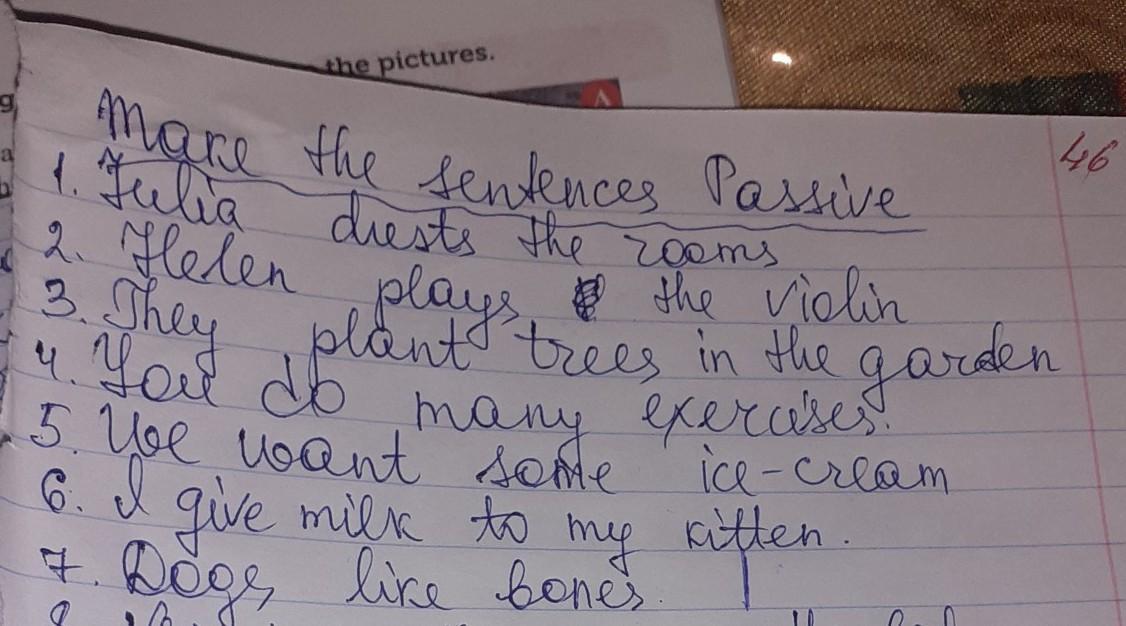 the pictures.
Make the sentences Passive
46
1. Julia dusts the rooms
2. Helen plays the violin
3. They plant trees in the garden
4. You do many exercises.
5. We want some ice-cream
6. I give milk to my kitten.
7. Dogs like bones.
8.